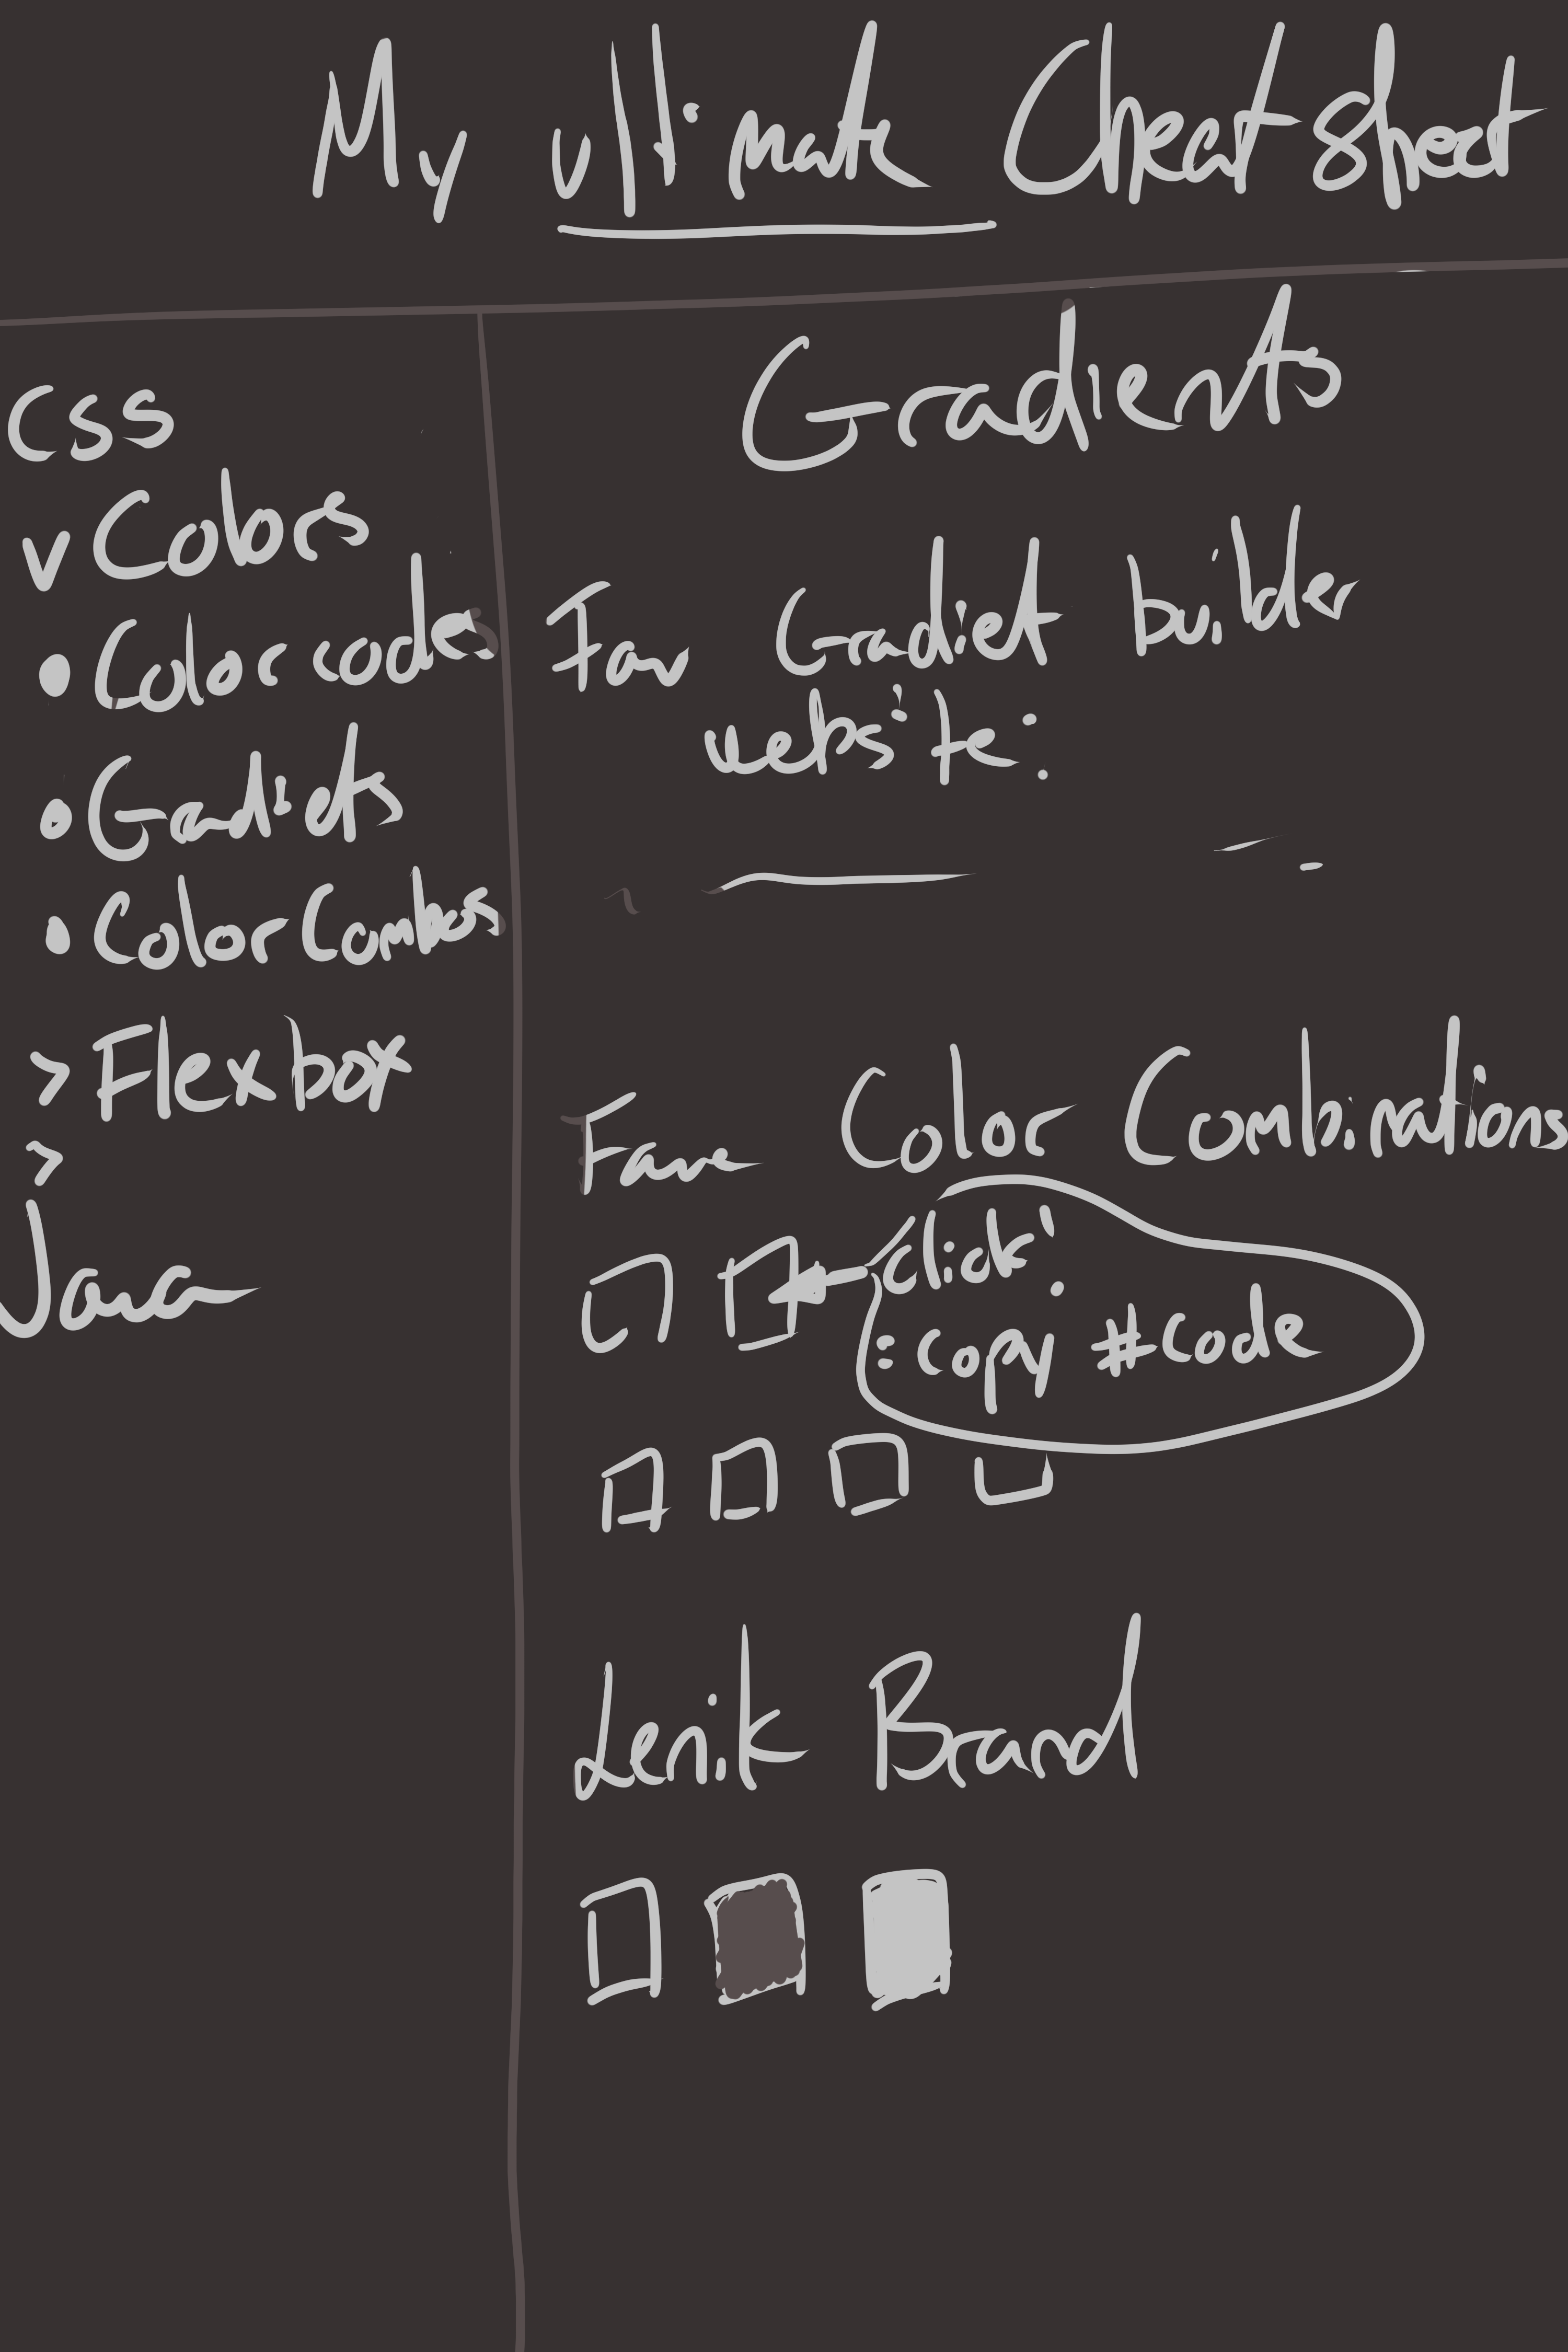 My Ultimate Cheat sheet
CSS
v Colors
• Color codes
• Gradiets
• Color Combos
> Flexbox
>
Java
Gradients
Fav Gradient builder
website:
Fav Color Combinations
click
: Copy #code
Lenik Brand